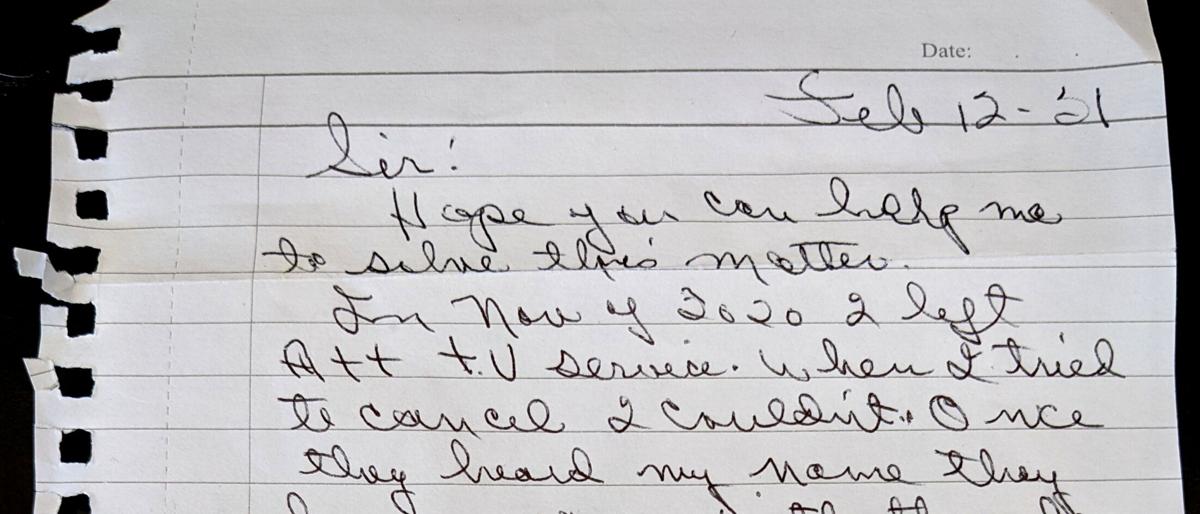 Date:
Feb 12-'21
Sir!
Hope you can help me
to solve this matter.
In Nov of 2020 I left
Att t.V service. When I tried
to cancel I couldn't. Once
they heard my name they